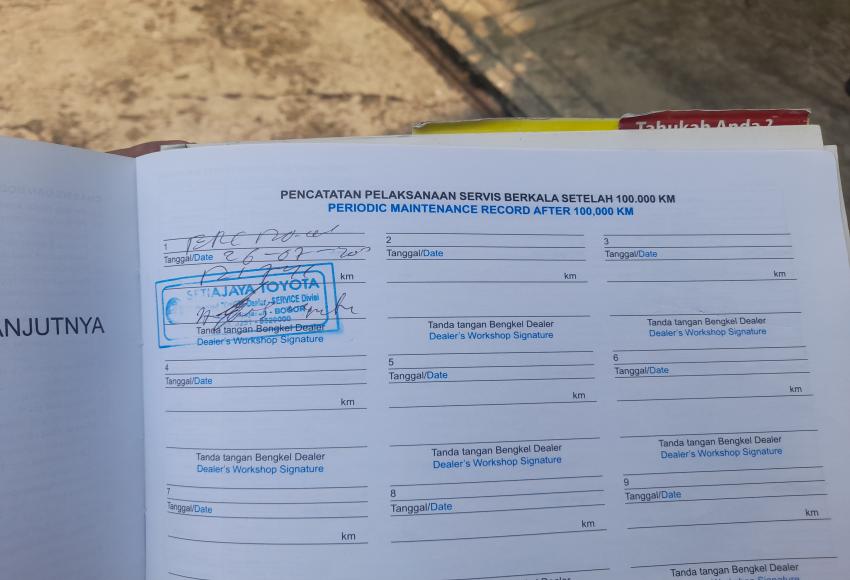 Tahukah Anda ?
PENCATATAN PELAKSANAAN SERVIS BERKALA SETELAH 100.000 KM
PERIODIC MAINTENANCE RECORD AFTER 100,000 KM
ANJUTNYA
1
Tanggal/Date 26-07-
km
SETIAJAYA TOYOTA
Dealer - SERVICE Divisi
- BOGOR
Tanda tangan Bengkel Dealer
Dealer's Workshop Signature
2
Tanggal/Date
km
Tanda tangan Bengkel Dealer
Dealer's Workshop Signature
3
Tanggal/Date
km
Tanda tangan Bengkel Dealer
Dealer's Workshop Signature
4
Tanggal/Date
km
Tanda tangan Bengkel Dealer
Dealer's Workshop Signature
5
Tanggal/Date
km
Tanda tangan Bengkel Dealer
Dealer's Workshop Signature
6
Tanggal/Date
km
Tanda tangan Bengkel Dealer
Dealer's Workshop Signature
7
Tanggal/Date
km
8
Tanggal/Date
km
Tanda tangan Bengkel Dealer
9
Tanggal/Date
km
Tanda tangan Bengkel Dealer